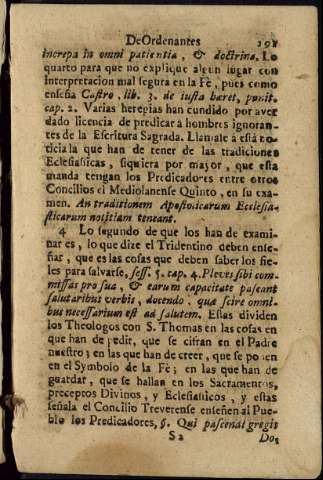 De Ordenantes 291
increpa in omni patientia, & doctrina. Lo
quarto para que no explique algun lugar con
interpretacion mal segura en la Fè, pues como
enseña Castro, lib. 3. de iusta hæret, punit.
cap. 2. Varias heregias han cundido por aver
dado licencia de predicar à hombres ignoran-
tes de la Escritura Sagrada. Llamale à esta no-
ticia la que han de tener de las tradiciones
Eclesiasticas, siquiera por mayor, que esta
manda tengan los Predicadores entre otros
Concilios el Mediolanense Quinto, en su exa-
men. An traditionem Apostolicarum Ecclesia-
sticarum notitiam teneant.
4 Lo segundo de que los han de exami-
nar es, lo que dize el Tridentino deben ense-
ñar, que es las cosas que deben saber los fie-
les para salvarse, sess. 5. cap. 4. Pleves sibi com-
missas pro sua, & earum capacitate pascant
salutaribus verbis, docendo: quæ scire omni-
bus necessarium est ad salutem. Estas dividen
los Theologos con S. Thomas en las cosas en
que han de pedir, que se cifran en el Padre
nuestro; en las que han de creer, que se ponen
en el Symbolo de la Fè; en las que han de
guardar, que se hallan en los Sacramentos,
preceptos Divinos, y Eclesiasticos, y estas
señala el Concilio Treverense enseñen al Pue-
blo los Predicadores, §. Qui pascendi gregis
S2 Do-